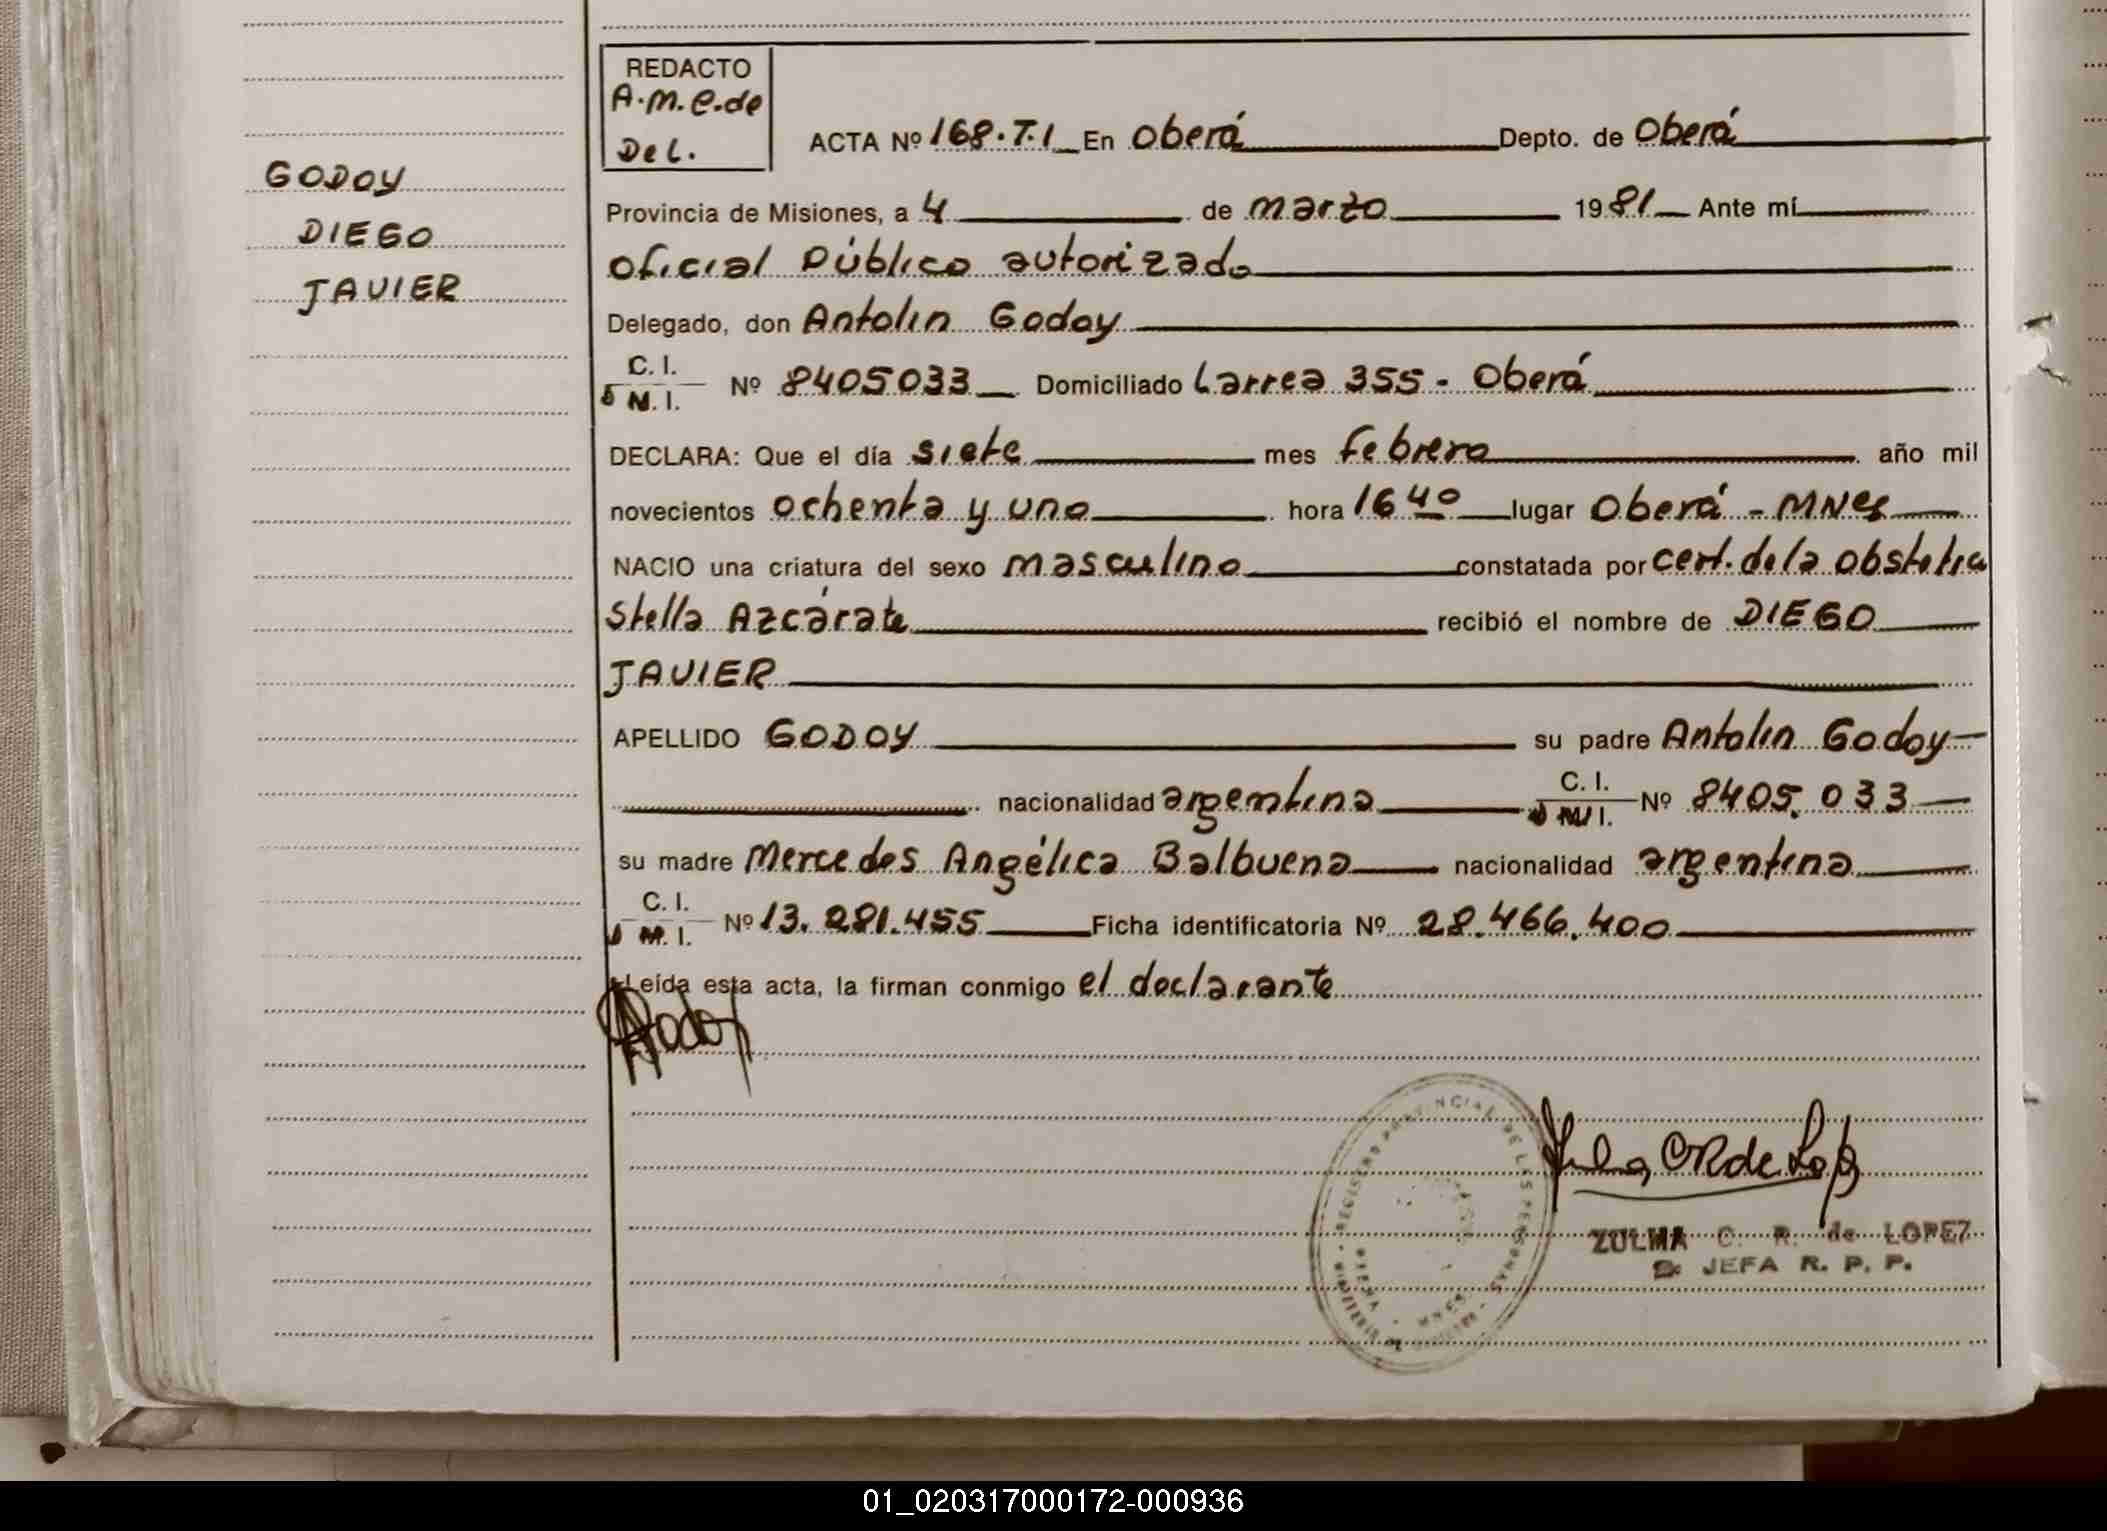 REDACTO
A.M.E.de
Del.
ACTA Nº 168.T.1 En Oberá Depto. de Oberá
GODOY
DIEGO
JAVIER
Provincia de Misiones, a 4 de marzo 1981 Ante mí
Oficial Público autorizado
Delegado, don Antolin Godoy
C. I.
M. I. Nº 8405033 Domiciliado Larrea 355 - Oberá
DECLARA: Que el día siete mes Febrero año mil
novecientos ochenta y uno hora 16 40 lugar Oberá - MNes
NACIO una criatura del sexo masculino constatada por cert. de la obstetra
Stella Azcárate recibió el nombre de DIEGO
JAVIER
APELLIDO GODOY su padre Antolin Godoy
nacionalidad argentina C. I. M. I. Nº 8405.033
su madre Mercedes Angélica Balbuena nacionalidad argentina
C. I.
M. I. Nº 13.281.455 Ficha identificatoria Nº 28.466.400
Leída esta acta, la firman conmigo el declarante
AGodoy
REGISTRO PROVINCIAL DE LAS PERSONAS
Zulma CR de Lopez
ZULMA C. R. de LOPEZ
JEFA R. P. P.
01_020317000172-000936